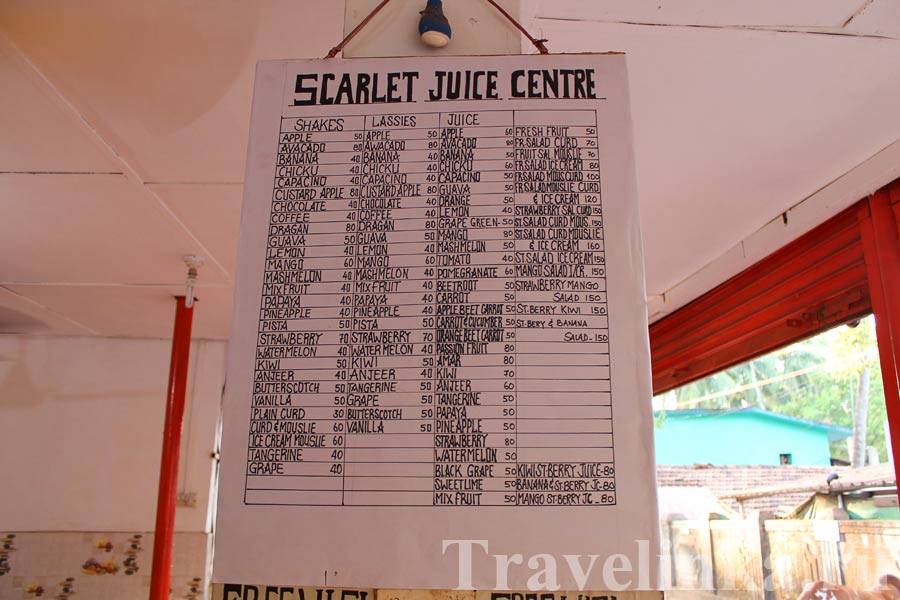 SCARLET JUICE CENTRE
SHAKES
APPLE 50
AVACADO 80
BANANA 40
CHICKU 40
CAPACINO 40
CUSTARD APPLE 80
CHOCOLATE 40
COFFEE 40
DRAGAN 80
GUAVA 50
LEMON 40
MANGO 60
MASHMELON 40
MIX FRUIT 40
PAPAYA 40
PINEAPPLE 40
PISTA 50
STRAWBERRY 70
WATERMELON 40
KIWI 50
ANJEER 40
BUTTERSCOTCH 50
VANILLA 50
PLAIN CURD 30
CURD & MOUSLIE 60
ICE CREAM MOUSLIE 60
TANGERINE 40
GRAPE 40
LASSIES
APPLE 50
AWACADO 80
BANANA 40
CHICKU 40
CAPACINO 40
CUSTARD APPLE 80
CHOCOLATE 40
COFFEE 40
DRAGAN 80
GUAVA 50
LEMON 40
MANGO 60
MASHMELON 40
MIX FRUIT 40
PAPAYA 40
PINEAPPLE 40
PISTA 50
STRAWBERRY 70
WATER MELON 40
KIWI 50
ANJEER 40
TANGERINE 50
GRAPE 50
BUTTERSCOTCH 50
VANILLA 50
JUICE
APPLE 60
AVACADO 80
BANANA 50
CHICKU 60
CAPACINO 50
GUAVA 50
ORANGE 50
LEMON 40
GRAPE GREEN 50
MANGO 80
MASHMELON 50
TOMATO 40
POMEGRANATE 60
BEETROOT 50
CARROT 50
APPLE BEET CARROT 50
CARROT & CUCUMBER 50
ORANGE BEET CARROT 50
PASSION FRUIT 80
AMAR 80
KIWI 70
ANJEER 60
TANGERINE 50
PAPAYA 50
PINEAPPLE 50
STRAWBERRY 80
WATERMELON 50
BLACK GRAPE 50
SWEETLIME 50
MIX FRUIT 50
FRESH FRUIT 50
FR.SALAD CURD 70
FRUIT SAL MOUSLIE 70
FR.SALAD ICE CREAM 80
FR.SALAD MOUS.CURD 100
FR.SALAD MOUSLIE CURD
& ICE CREAM 120
STRAWBERRY SAL CURD 150
ST.SALAD CURD MOUS. 150
ST.SALAD CURD MOUSLIE
& ICE CREAM 160
ST.SALAD ICE CREAM 150
MANGO SALAD I/CR. 150
STRAWBERRY MANGO
SALAD 150
ST.BERRY KIWI 150
ST.BERY & BANANA
SALAD - 150
KIWI ST.BERRY JUICE-80
BANANA & ST.BERRY JC-80
MANGO ST.BERRY JC - 80